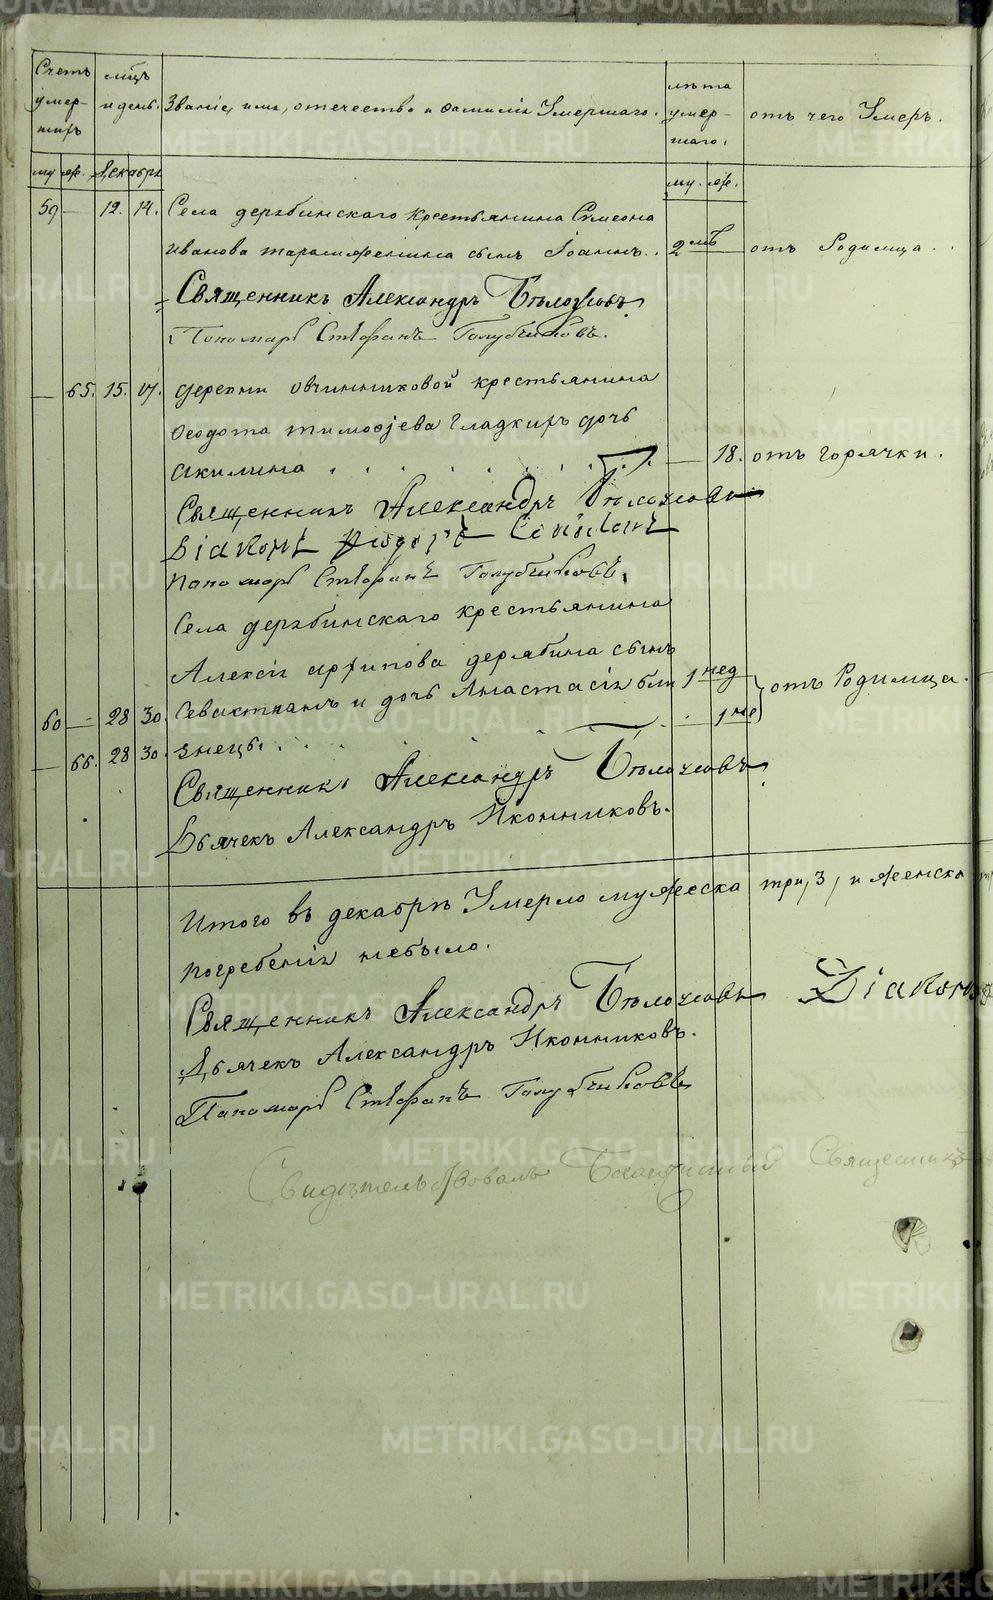 Счетъ умер-шихъ
мѣсцъ и день.
Званіе, имя, отечество и фамилія Умершаго.
лѣта умер-шаго.
отъ чего Умеръ.
му. же. Декабрь му. же.
59 — 12. 14. Села дерябинскаго крестьянина Симеона
Иванова сынъ Іоаннъ. 2 мѣ отъ Родимца.
Священникъ Александръ
Пономарь Стефанъ Голубчиковъ.
— 65. 15. 17. деревни овчинниковой крестьянина
Ѳеодота тимоѳеева Гладкихъ дочь
Акилина — 18. отъ горячки.
Священникъ Александръ
Діаконъ
Пономарь Стефанъ Голубчиковъ.
Села дерябинскаго крестьянина
Алексія архипова дерябина сынъ 1 нед
60 — 28 30. Севастианъ и дочь Анастасія бли отъ Родимца.
— 66. 28 30. знецы. — 1 не
Священникъ Александръ
Дьячекъ Александръ Иконниковъ.
Итого въ декабрѣ Умерло мужеска три, 3, и женска
погребенія небыло.
Священникъ Александръ Діаконъ
Дьячекъ Александръ Иконниковъ.
Пономарь Стефанъ Голубчиковъ
Свидѣтельствовалъ Благочинный Священникъ
METRIKI.GASO-URAL.RU